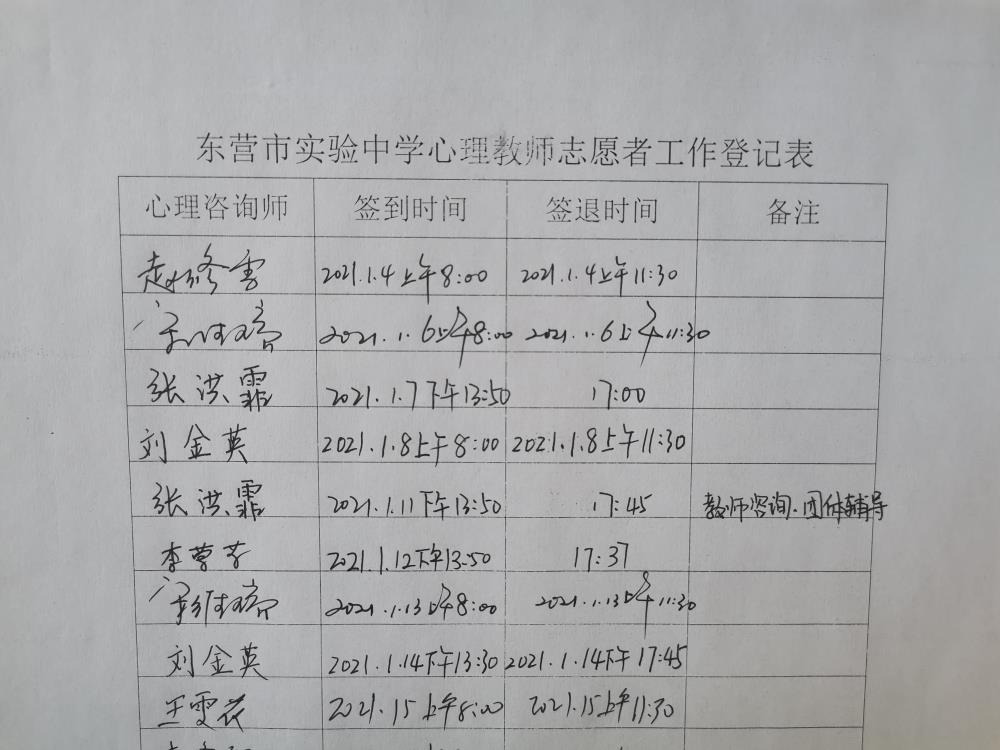 东营市实验中学心理教师志愿者工作登记表
心理咨询师 签到时间 签退时间 备注
赵修雪 2021.1.4上午8:00 2021.1.4上午11:30
2021.1.6上午8:00 2021.1.6上午11:30
张洪霏 2021.1.7下午13:50 17:00
刘金英 2021.1.8上午8:00 2021.1.8上午11:30
张洪霏 2021.1.11下午13:50 17:45 教师咨询.团体辅导
2021.1.12下午13:50 17:37
2021.1.13上午8:00 2021.1.13上午11:30
刘金英 2021.1.14下午13:30 2021.1.14下午17:45
王雯花 2021.15上午8:00 2021.15上午11:30